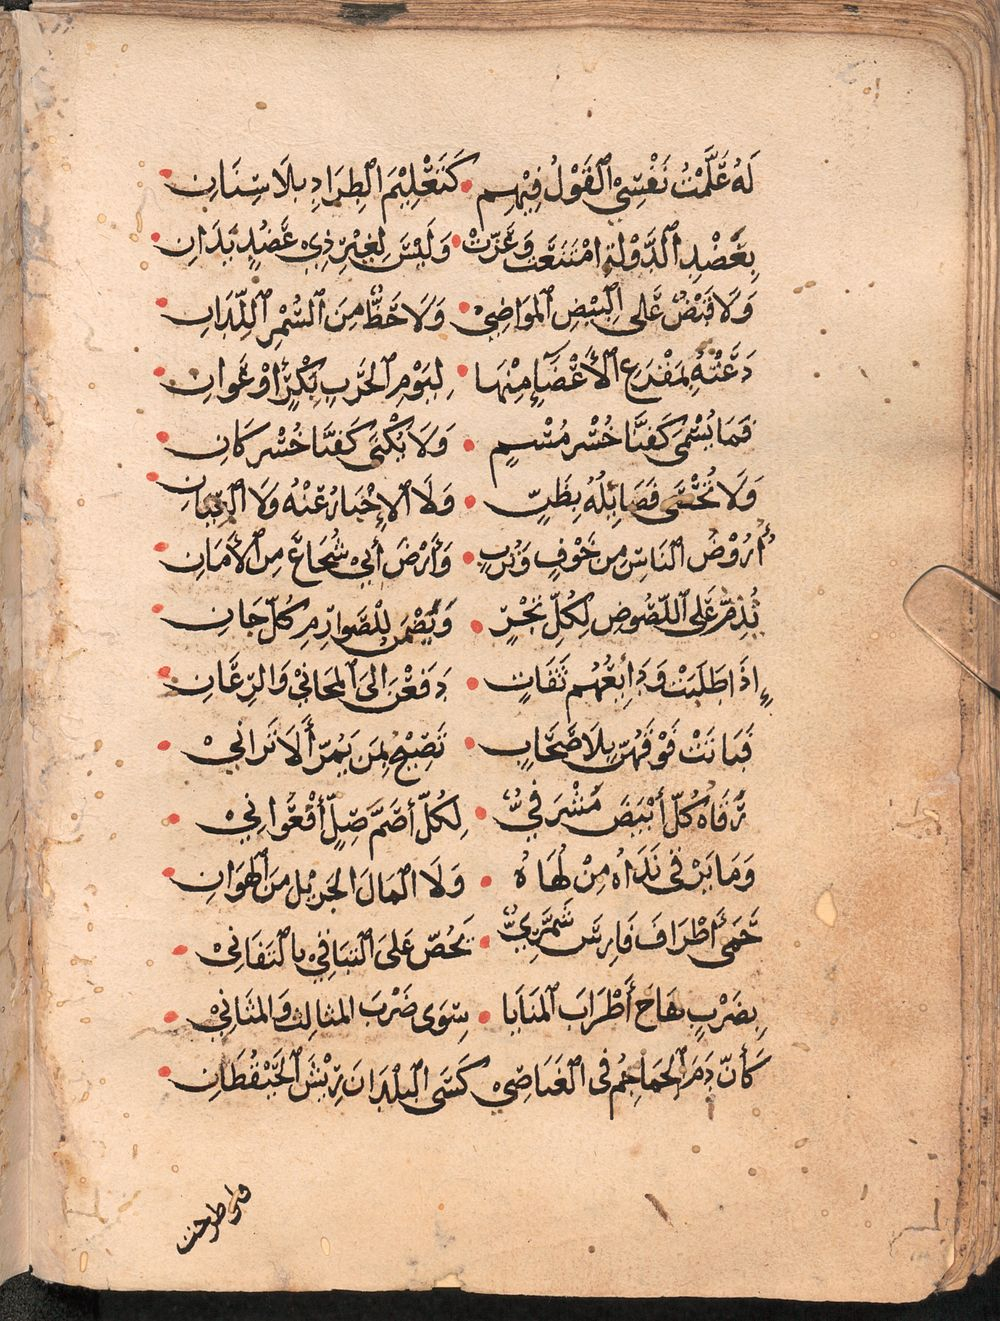 لَهُ عَلَّمْتُ نَفْسِيْ الْقَوْلَ فِيْهِم • كَتَعْلِيْمِ الطِرَادِ بِلَا سِنَانِ •
بِعَضْدِ الدَّوْلَةِ امْتَنَعَتْ وَعَزَّتْ • وَلَيْسَ لِغَيْرِ ذِيْ عَضُدٍ يَدَانِ •
وَلَا قَبْضٌ عَلَى البِيْضِ المَوَاضِيْ • وَلَا حَظٌّ مِنَ السُّمْرِ اللِّدَانِ •
دَعَتْهُ بِمَفْزَعِ الأَعْضَاءِ مِنْهَا • لِيَوْمِ الحَرْبِ بِكْرٍ أَوْ عَوانِ •
فَمَا يُسْمَى كَفَنَّا خُسْرِ مُسْمٍ • وَلَا يُكْنَى كَفَنَّا خُسْرَ كَانِ •
وَلَا تُحْصَى فَضَايِلُهُ بِظَنٍّ • وَلَا الإِخْبَارُ عَنْهُ وَلَا العِيَانِ •
أُرُوْضُ النَاسِ مِن خَوْفٍ وَتُربٍ • وَأَرْضُ أَبِيْ شُجَاعٍ مِن الأَمَانِ •
تُذِمُّ عَلَى اللّصُوصِ لِكُلِّ تَجْرٍ • وَتَضْمَنُ لِلْصَّوَارِمِ كُلَّ جَانِ •
إِذَا طَلَبَتْ وَدَايِعُهُم ثَقَاتٍ • دَفَعْنَ الىَ المَحَانِيْ وَالرِّعَانِ •
فَبَاتَتْ فَوْقَهُنَّ بِلَا صَحَّابٍ • تَصِيْحُ بِمَن يَمُرُّ أَلَا تَرَانِيْ •
رُقَاهُ كُلُّ أَبْيَضَ مَشْرَفيٍّ • لِكُلِّ أَصَمَّ صِلٍّ أُفْعُوَانِيْ •
وَمَا يَرْقى نَدَاهُ مِنْ لُهَاهُ • وَلَا المَالَ الجَزِيْلَ مِنَ الهَوَانِ •
حَمَى أَطْرَافَ فَارِسَ شَمَّرِيٌّ • يَحُضّ عَلىَ التَّبَاقِيْ بِالتَفَانِيْ •
بِضَرْبٍ هَاجَ أَطْرَابَ المَنَايَا • سِوَى ضَرْبِ المثَالِثِ وَالمَثَانِيْ •
كَأَنَّ دَمَ الجَمَاجِمِ فى العَنَاصِيْ كَسَى البِلْدَانَ رِيْشَ الحَيْقُطَانِ •
فلو طرحت